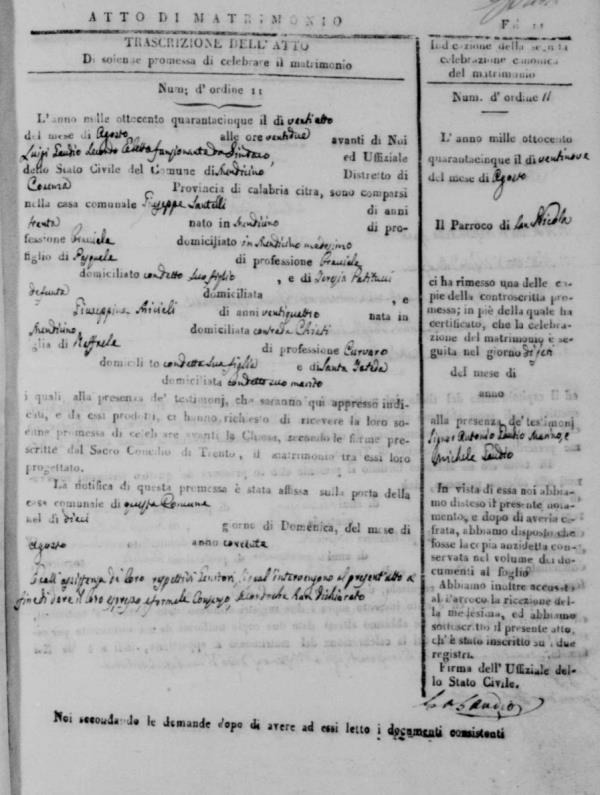 ATTO DI MATRIMONIO
TRASCRIZIONE DELL'ATTO
Di solenne promessa di celebrare il matrimonio
Num; d'ordine 11
L'anno mille ottocento quarantacinque il dì ventiotto
del mese di Agosto alle ore ventidue avanti di Noi
Luigi Gaudio Secondo Eletto funzionante da Sindaco, ed Uffiziale
dello Stato Civile del Comune di Mendicino Distretto di
Cosenza Provincia di calabria citra, sono comparsi
nella casa comunale Giuseppe Santelli di anni
trenta nato in Mendicino di pro-
fessione Bracciale domiciliato in Mendicino medesimo
figlio di Pasquale di professione Bracciale
domiciliato condetto suo figlio, e di Teresia Patitucci
defunta domiciliata , e
Giuseppina di anni ventiquattro nata in
Mendicino, domiciliata contrada
glia di Raffaele di professione
domicilito condetta sua figlia e di Santa
domiciliata condetto suo marito
i quali, alla presenza de' testimonj, che saranno qui appresso indi-
cati, e da essi prodotti, ci hanno richiesto di ricevere la loro so-
enne promessa di celebrare avanti la Chiesa, secondo le forme pre-
scritte dal Sacro Concilio di Trento, il matrimonio tra essi loro
progettato.
La notifica di questa promessa è stata affissa sulla porta della
casa comunale di questa Comune
nel di dieci giorno di Domenica, del mese di
Agosto anno corrente
coll'assistenza di loro rispettivi Genitori, i quali intervengono al present'atto a
fine di dare il loro espresso, e formale Consenso, secondoche han dichiarato
Noi secondando le demande dopo di avere ad essi letto i documenti consistenti
F. 11
Indicazione della seguita
celebrazione canonica
del matrimonio
Num. d'ordine 11
L'anno mille ottocento
quarantacinque il dì ventinove
del mese di Agosto
Il Parroco di San Nicola
ci ha rimesso una delle co-
pie della controscritta pro-
messa; in piè della quale ha
certificato, che la celebra-
zione del matrimonio è se-
guita nel giorno di jeri
del mese di
anno
alla presenza de' testimonj
Signor Antonio Gaudio Manno, e
Michele Gaudio
In vista di essa noi abbia-
mo disteso il presente nota-
mento, e dopo di averla ci-
frata, abbiamo disposto che
fosse la copia anzidetta con-
servata nel volume dei do-
cumenti al foglio
Abbiamo inoltre accusato
al Parroco la ricezione del-
la medesima, ed abbiamo
sottoscritto il presente atto,
ch' è stato inscritto su i due
registri.
Firma dell' Uffiziale del-
lo Stato Civile.
Gaudio